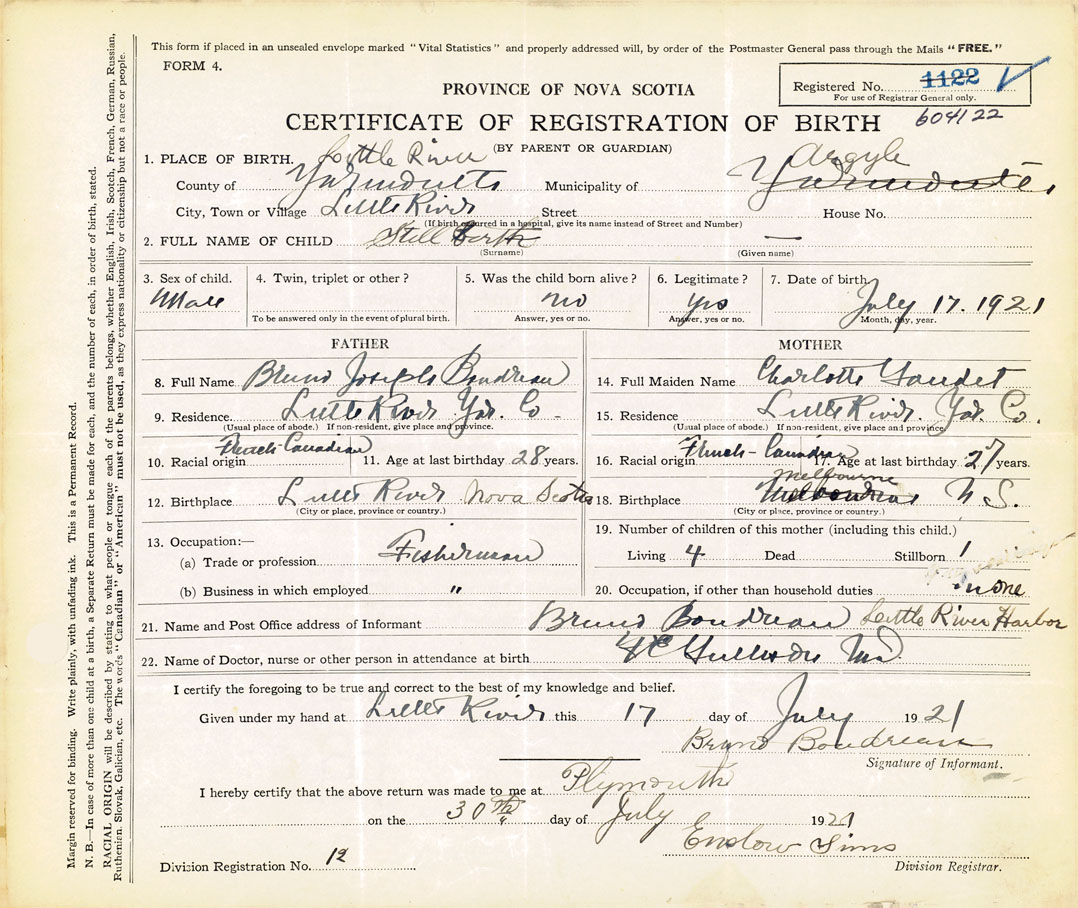 This form if placed in an unsealed envelope marked "Vital Statistics" and properly addressed will, by order of the Postmaster General pass through the Mails "FREE."
FORM 4.
Registered No. 1122
For use of Registrar General only.
604122
PROVINCE OF NOVA SCOTIA
CERTIFICATE OF REGISTRATION OF BIRTH
(BY PARENT OR GUARDIAN)
1. PLACE OF BIRTH. Little River Argyle
County of Yarmouth Municipality of Yarmouth
City, Town or Village Little River Street House No.
(If birth occurred in a hospital, give its name instead of Street and Number)
2. FULL NAME OF CHILD Still Birth —
(Surname) (Given name)
3. Sex of child. 4. Twin, triplet or other? 5. Was the child born alive? 6. Legitimate? 7. Date of birth
Male no yes July 17. 1921
To be answered only in the event of plural birth. Answer, yes or no. Answer, yes or no. Month, day, year.
FATHER MOTHER
8. Full Name Bruno Joseph Boudreau 14. Full Maiden Name Charlotte Gaudet
9. Residence. Little River Yar. Co - 15. Residence Little River. Yar. Co.
(Usual place of abode.) If non-resident, give place and province. (Usual place of abode.) If non-resident, give place and province.
10. Racial origin French-Canadian 11. Age at last birthday 28 years. 16. Racial origin French-Canadian 17. Age at last birthday 27 years.
Melbourne
12. Birthplace Little River Nova Scotia 18. Birthplace N.S.
(City or place, province or country.) (City or place, province or country.)
13. Occupation:— 19. Number of children of this mother (including this child.)
(a) Trade or profession Fisherman Living 4 Dead Stillborn 1
(b) Business in which employed " 20. Occupation, if other than household duties none
21. Name and Post Office address of Informant Bruno Boudreau Little River Harbor
22. Name of Doctor, nurse or other person in attendance at birth M.D.
I certify the foregoing to be true and correct to the best of my knowledge and belief.
Given under my hand at Little River this 17 day of July 1921
Bruno Boudreau
Signature of Informant.
I hereby certify that the above return was made to me at Plymouth
on the 30th day of July 1921
Enslow Sims
Division Registration No. 12 Division Registrar.
Margin reserved for binding. Write plainly, with unfading ink. This is a Permanent Record.
N. B.—In case of more than one child at a birth, a Separate Return must be made for each, and the number of each, in order of birth, stated.
RACIAL ORIGIN will be described by stating to what people or tongue each of the parents belongs, whether English, Irish, Scotch, French, German, Russian,
Ruthenian, Slovak, Galician, etc. The words "Canadian" or "American" must not be used, as they express nationality or citizenship but not a race or people.